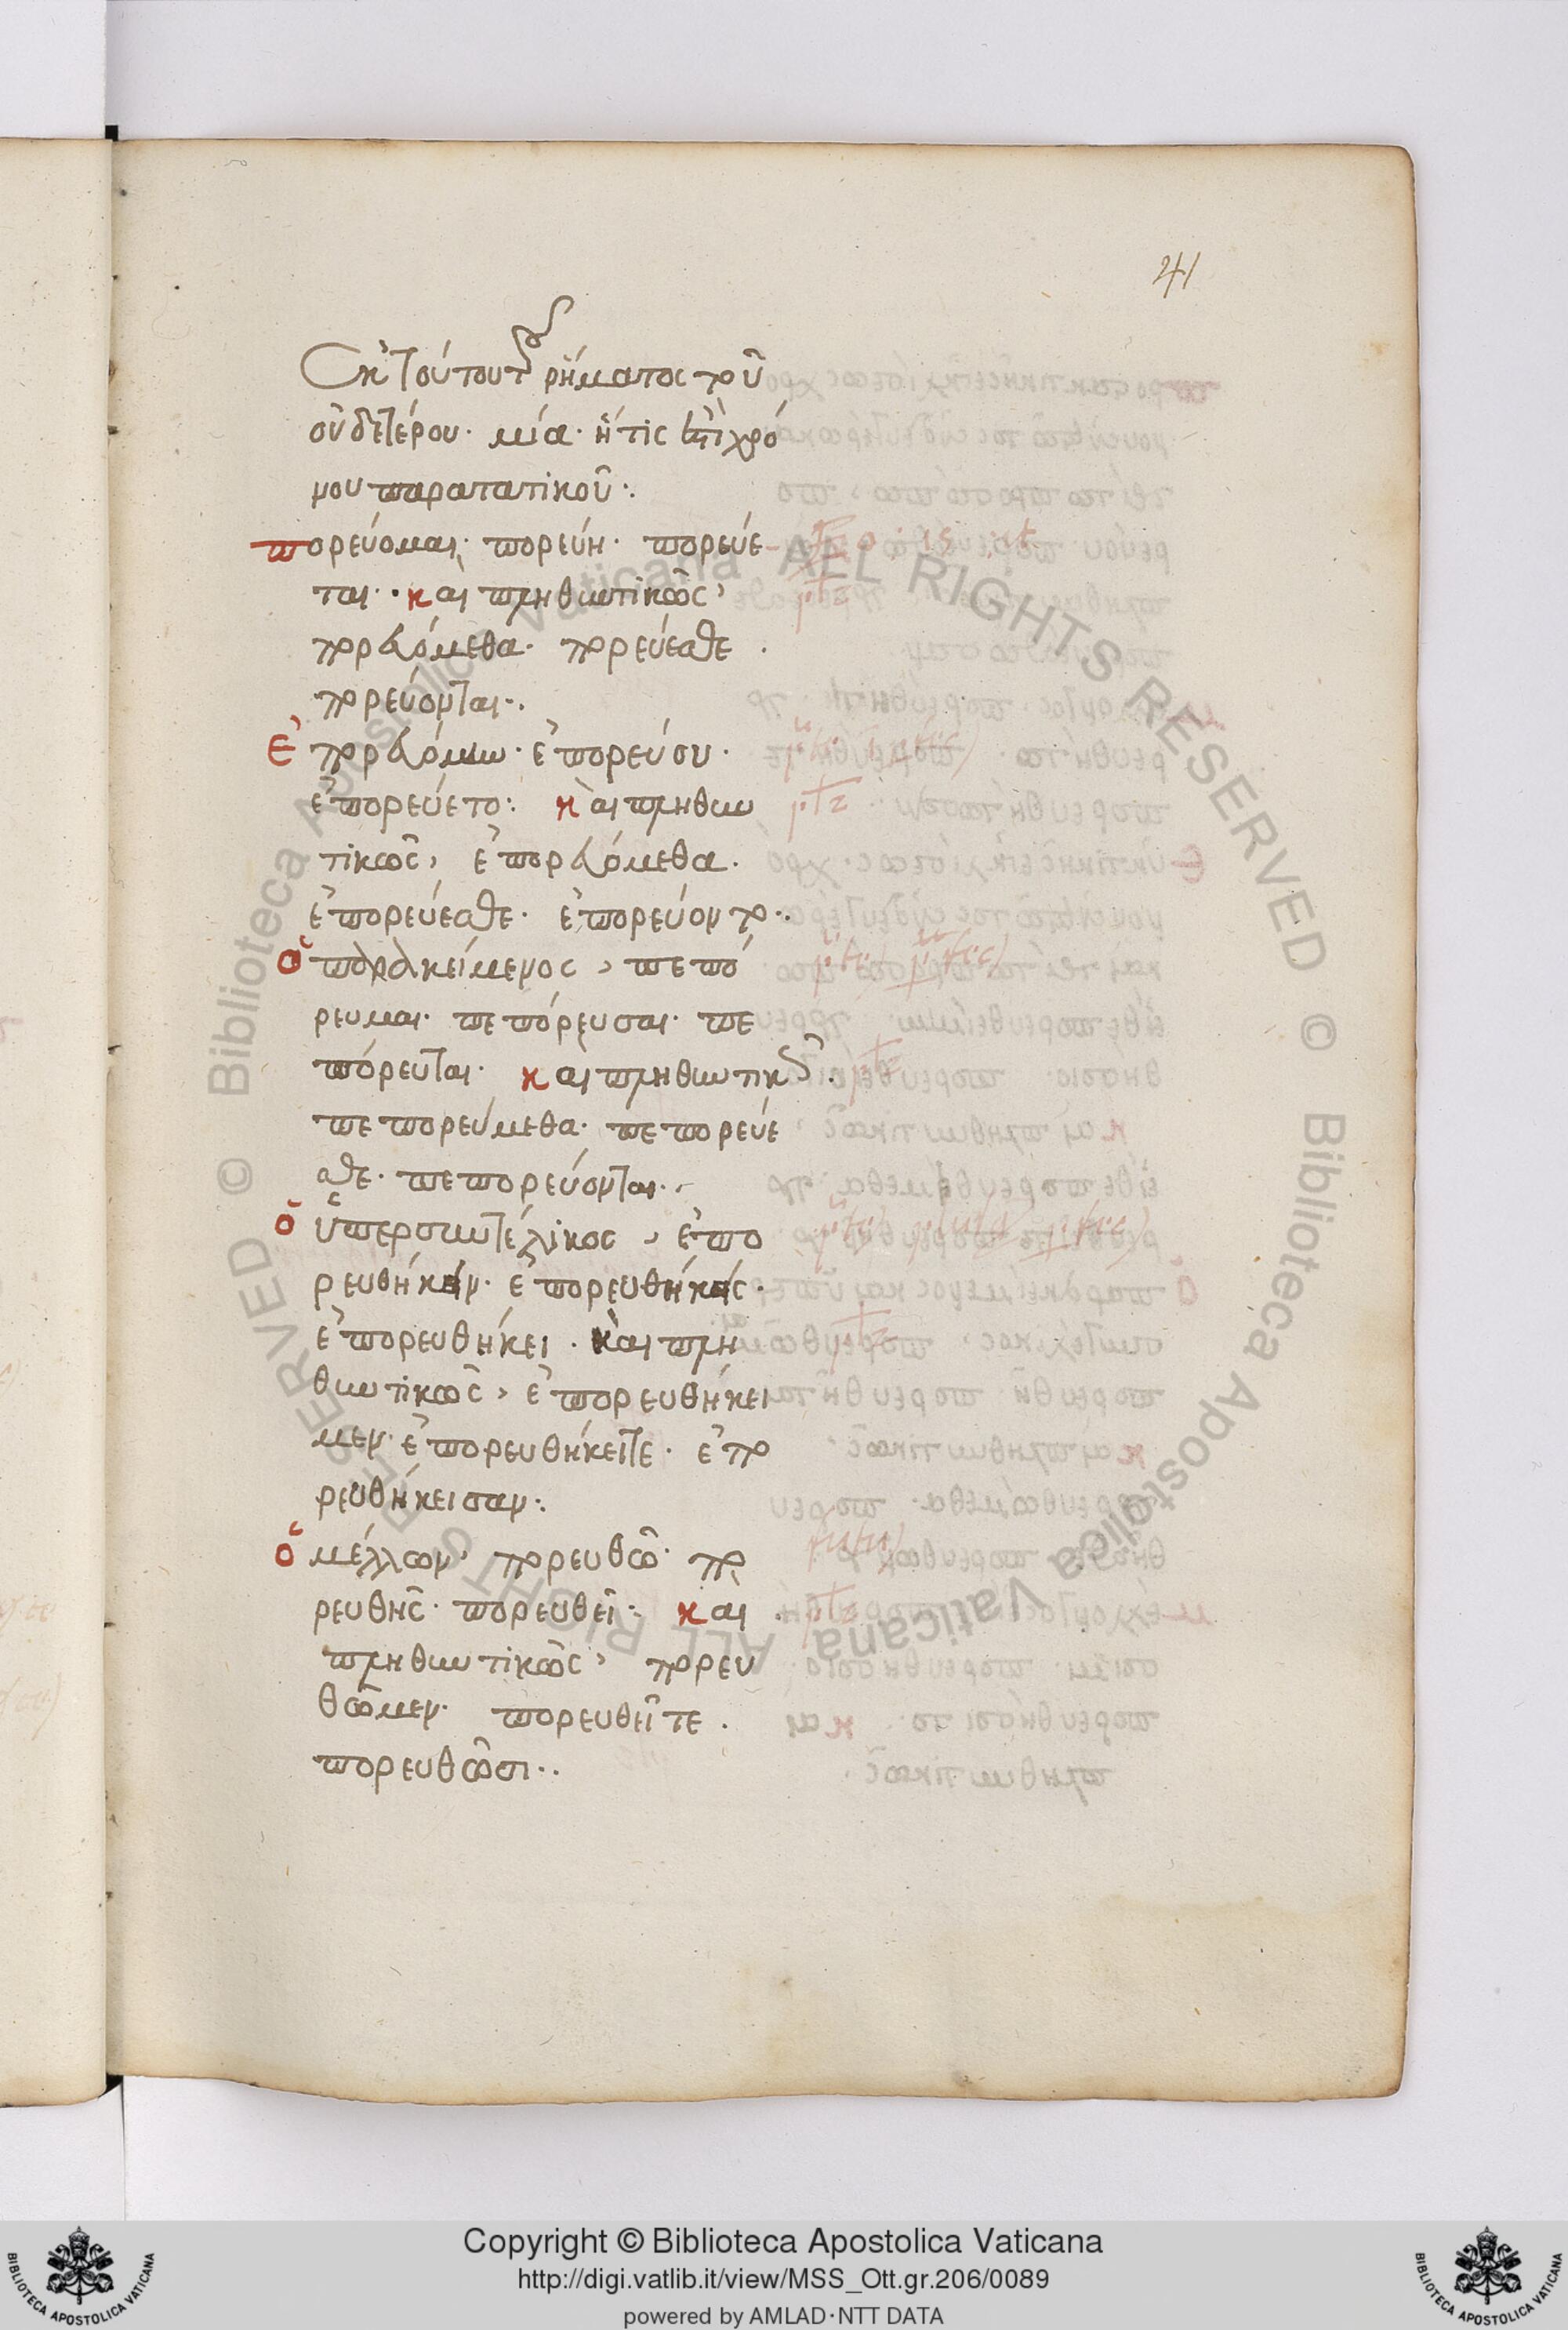 41
Ἐκ τούτου τοῦ ῥήματος τοῦ
οὐδετέρου· μία· ἥτις ἐπὶ χρό
νου παρατατικοῦ:
πορεύομαι· πορεύη· πορεύε
ται· καὶ πληθυντικῶς,
πορευόμεθα· πορεύεσθε·
πορεύονται·
Ἐπορευόμην· ἐπορεύου·
ἐπορεύετο: καὶ πληθυν
τικῶς, ἐπορευόμεθα·
ἐπορεύεσθε· ἐπορεύοντο··
ὁ παρακείμενος, πεπό
ρευμαι· πεπόρευσαι· πε
πόρευται· καὶ πληθυντικῶς·
πεπορεύμεθα· πεπορεύε
σθε· πεπορεύονται·
ὁ ὑπερσυντέλικος, ἐπο
ρευθήκειν· ἐπορευθήκεις·
ἐπορευθήκει· καὶ πλη
θυντικῶς, ἐπορευθήκει
μεν· ἐπορευθήκειτε· ἐπο
ρευθήκεισαν:
ὁ μέλλων· πορευθῶ· πο
ρευθῆς· πορευθεῖ· καὶ
πληθυντικῶς, πορευ
θῶμεν· πορευθεῖτε·
πορευθῶσι··
Copyright © Biblioteca Apostolica Vaticana
http://digi.vatlib.it/view/MSS_Ott.gr.206/0089
powered by AMLAD·NTT DATA
BIBLIOTECA APOSTOLICA VATICANA
BIBLIOTECA APOSTOLICA VATICANA
© Biblioteca Apostolica Vaticana ALL RIGHTS RESERVED
© Biblioteca Apostolica Vaticana ALL RIGHTS RESERVED